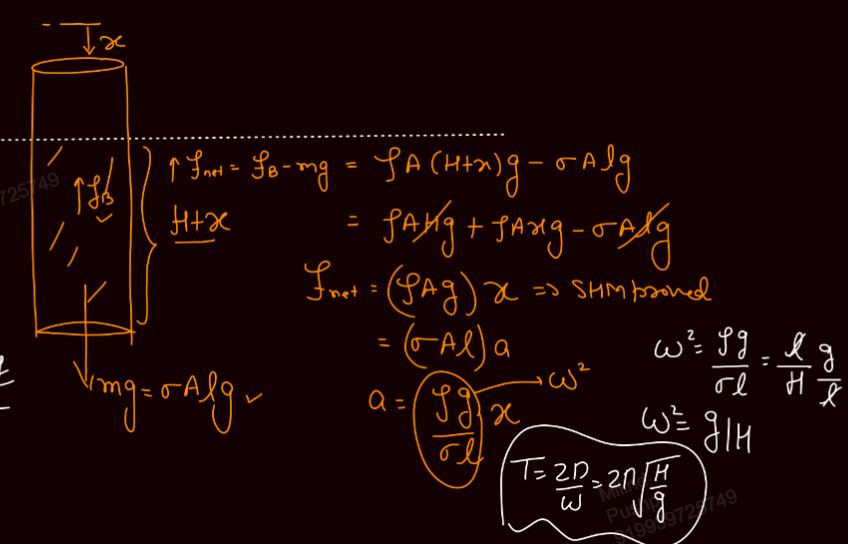 x
↑ fnet = fB - mg = ρA(H+x)g - σAlg
↑fB
H+x
= ρAHg + ρAxg - σAlg
fnet = (ρAg) x ⇒ SHM proved
= (σAl) a
mg = σAlg ✓
a = ρg/σl x → ω²
ω² = ρg/σl = l/H g/l
ω² = g/H
T = 2π/ω = 2π√(H/g)
725749
919999725749